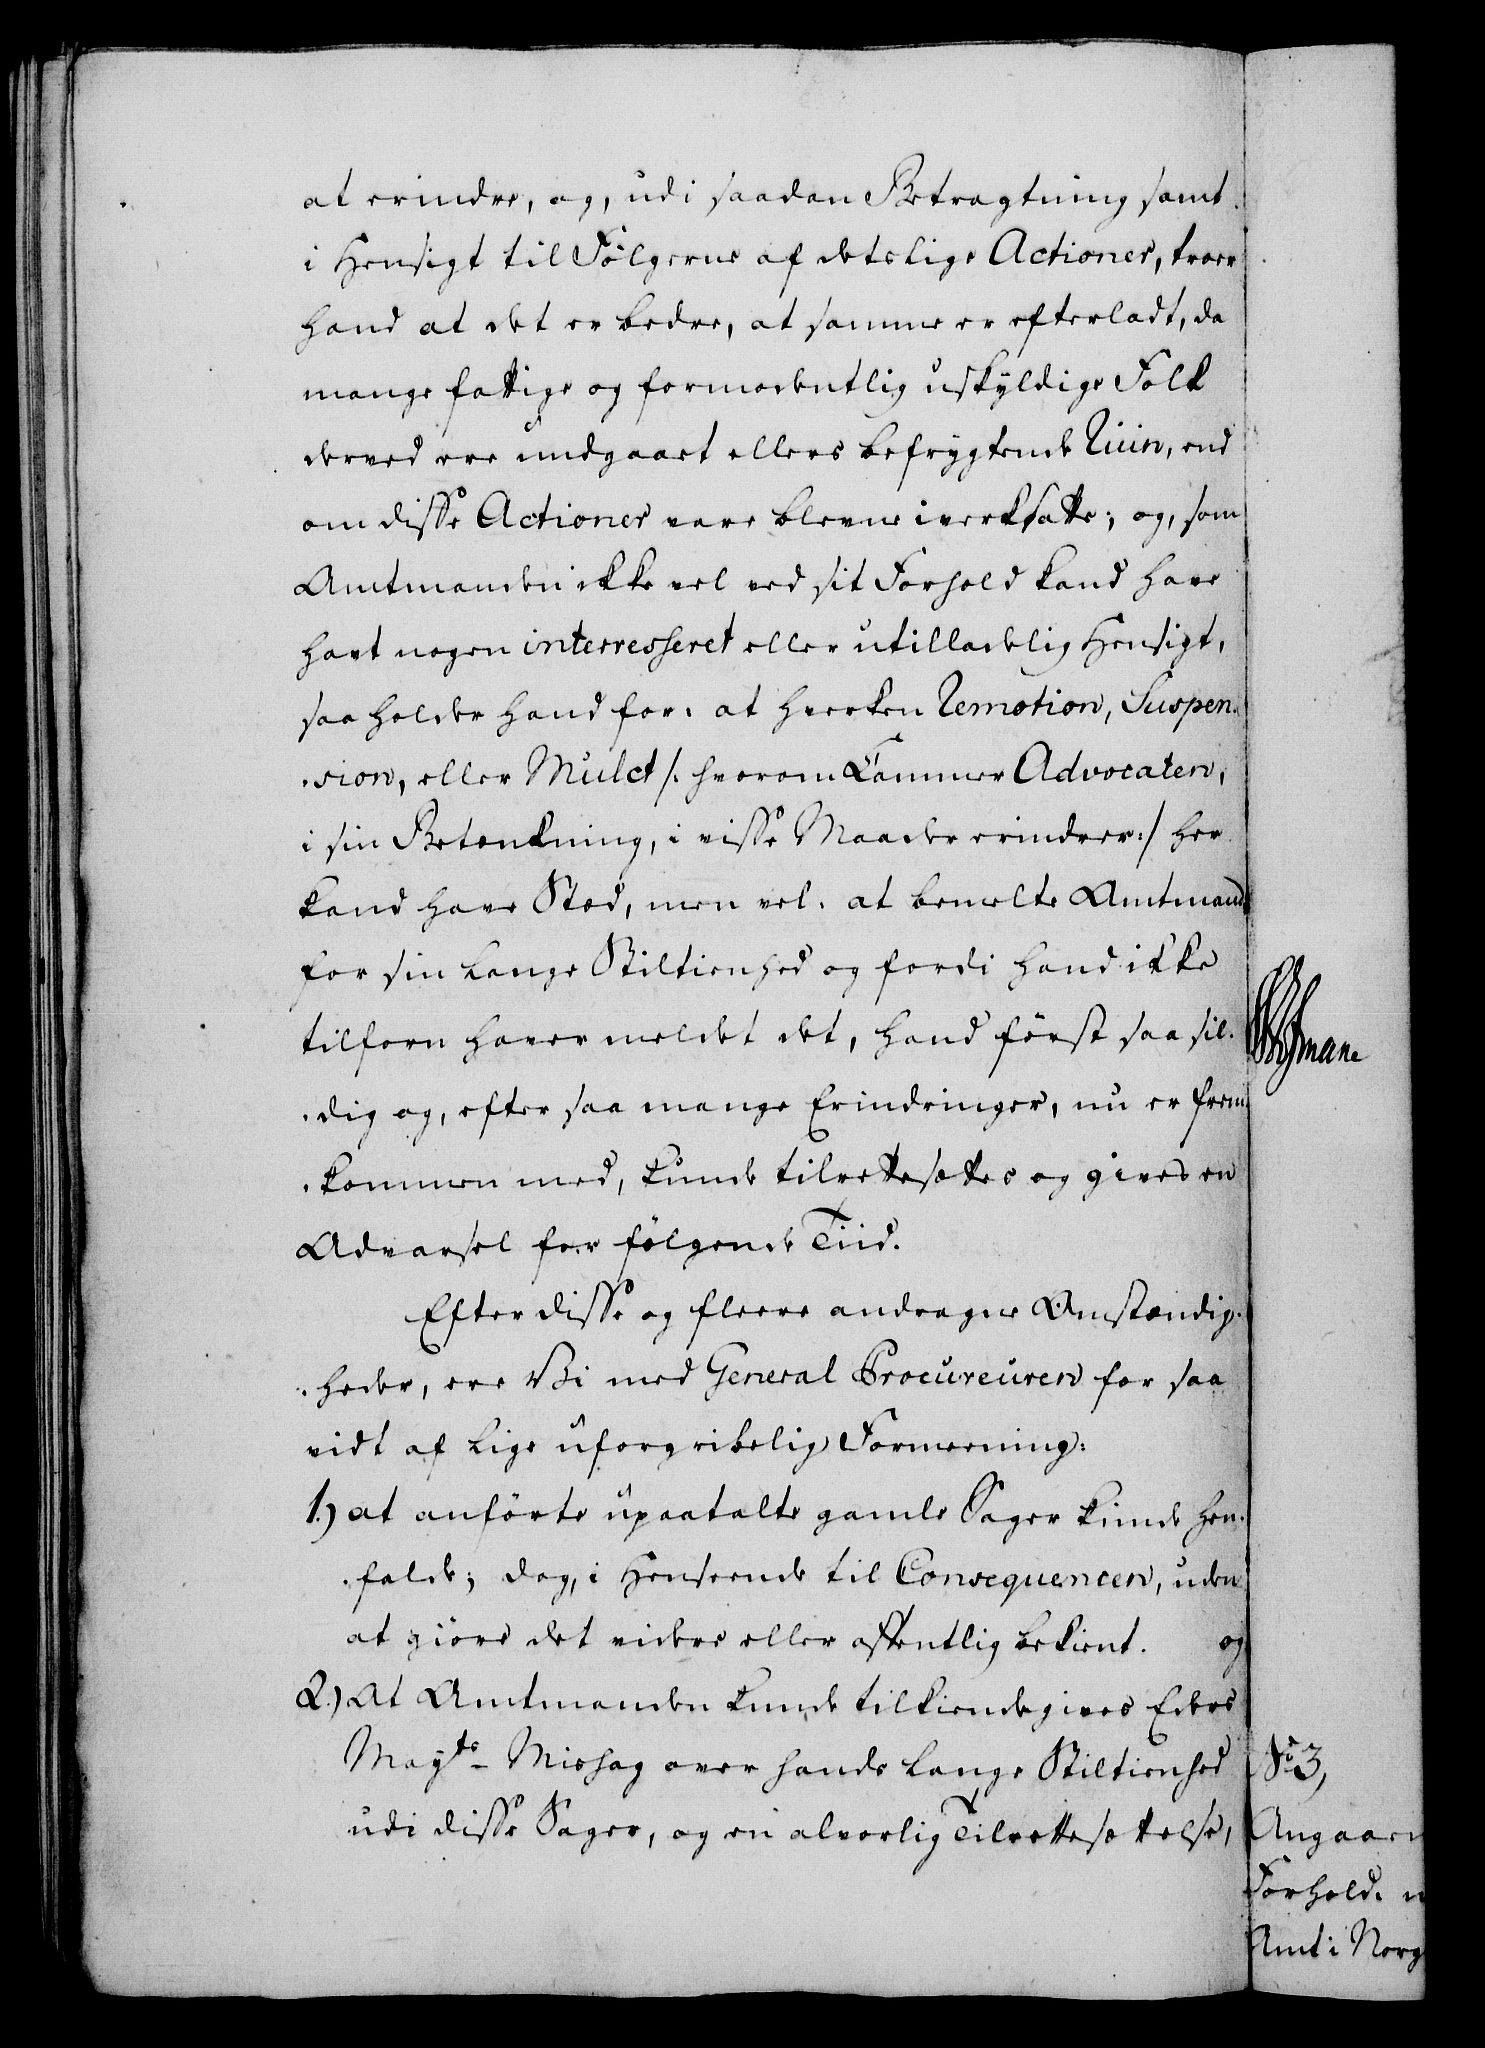 at erindre, og, udi saadan Betragtning samt
i Hensigt til Følgerne af detslige Actioner, troer
hand at det er bedre, at samme er efterladt, da
mange fattige og formodentlig uskÿldige Folk
derved ere undgaaet ellers befrygtende Ruin, end
om disse Actioner vare blevne iverksatte; og, som
Amtmanden ikke vel ved sit Forhold kand have
havt nogen interresseret eller utilladelig Hensigt,
saa holder hand for: at hverken Remotion, Suspen-
-sion, eller Mulct /: hvorom Cammer Advocaten,
i sin Betænkning, i visse Maader erindrer:/ her
kand have Stæd, men vel: at bemelte Amtmand
for sin lange Stiltienhed og fordi hand ikke
tilforn haver meldet det, hand først saa sil-
-dig og, efter saa mange Erindringer, nu er frem
-kommen med, kunde tilrettesættes og gives en
Advarsel for følgende Tiid.
Efter disse og fleere andragne Omstændig-
-heder, ere Vi med General Procureuren for saa
vidt af lige uforgribelig Formeening:
1.) at anførte upaatalte gamle Sager kunde hen-
-falde; dog, i Henseende til Consequencen, uden
at giøre det videre eller offentlig bekient. og
2.) At Amtmanden kunde tilkiendegives Eders
Mayts Mishag over hands lange Stiltienhed
udi disse Sager, og en alvorlig Tilrettesættelse,
No 3,
Angaaen
Forhold. u
Amt i Norg